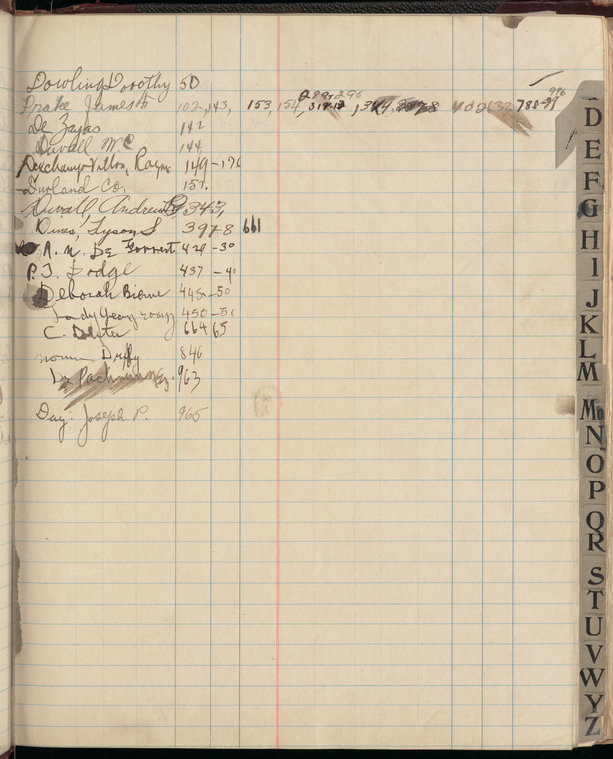 Dowling Dorothy 50
Drake James 102, 143, 153, 154, 289, 290 788-89 996
De Zayas 142
Duvall M C 144
Deuchamp-Villon, Raym 149-176
Durland Co. 157.
Duvall, Andrew 343,
Dines, Tyson S 397-8 661
A. N. De Forrest 429-30
P. J. Dodge 437-40
Deborah Birne 445-50
450-51
C. 664 65
846
De Pachmann 963
Day. Joseph P. 965
D
E
F
G
H
I
J
K
L
M
Mc
N
O
P
Q
R
S
T
U
V
W
Y
Z